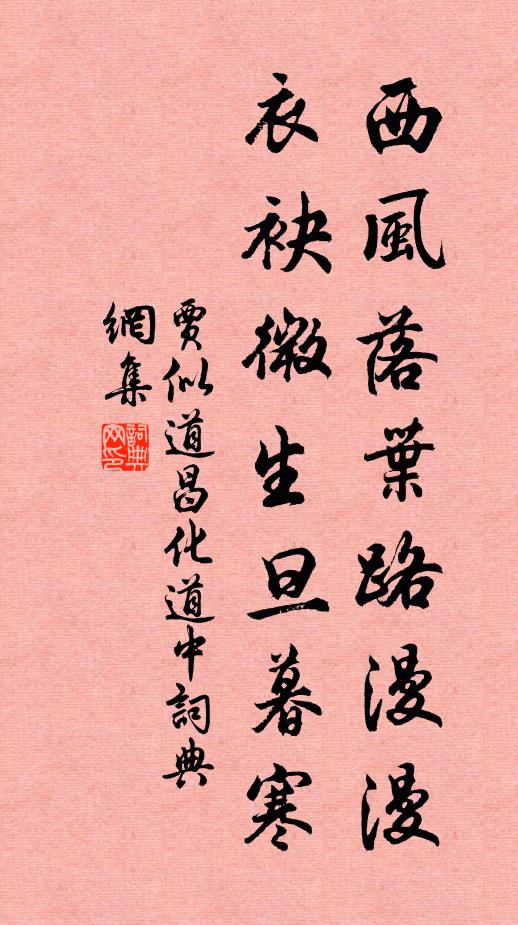 西風落葉路漫漫
衣袂微生旦暮寒
賈似道昌化道中詞典
網集
詞典网印